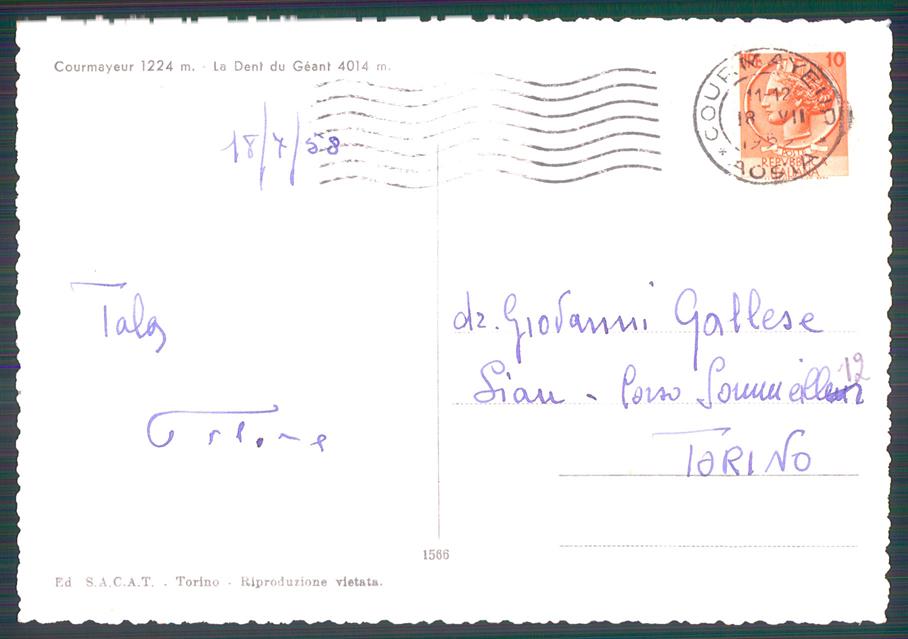 Courmayeur 1224 m. - La Dent du Géant 4014 m.
18/7/58
COURMAYEUR
11-12
18 VII
AOSTA
LIRE 10
POSTE
REPVBBLICA
ITALIANA
dr. Giovanni Gallese
12
Sian - Corso Sommeiller
TORINO
1566
Ed S.A.C.A.T. - Torino - Riproduzione vietata.